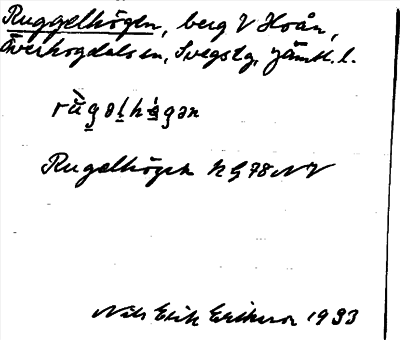 Ruggelhögen, berg V Hoån,
Överhogdals sn, Svegs tg, Jämtl. l.
rùgəlhö̀gən
Rugelhögen hg 78 NV
Nils Erik Eriksson 1933